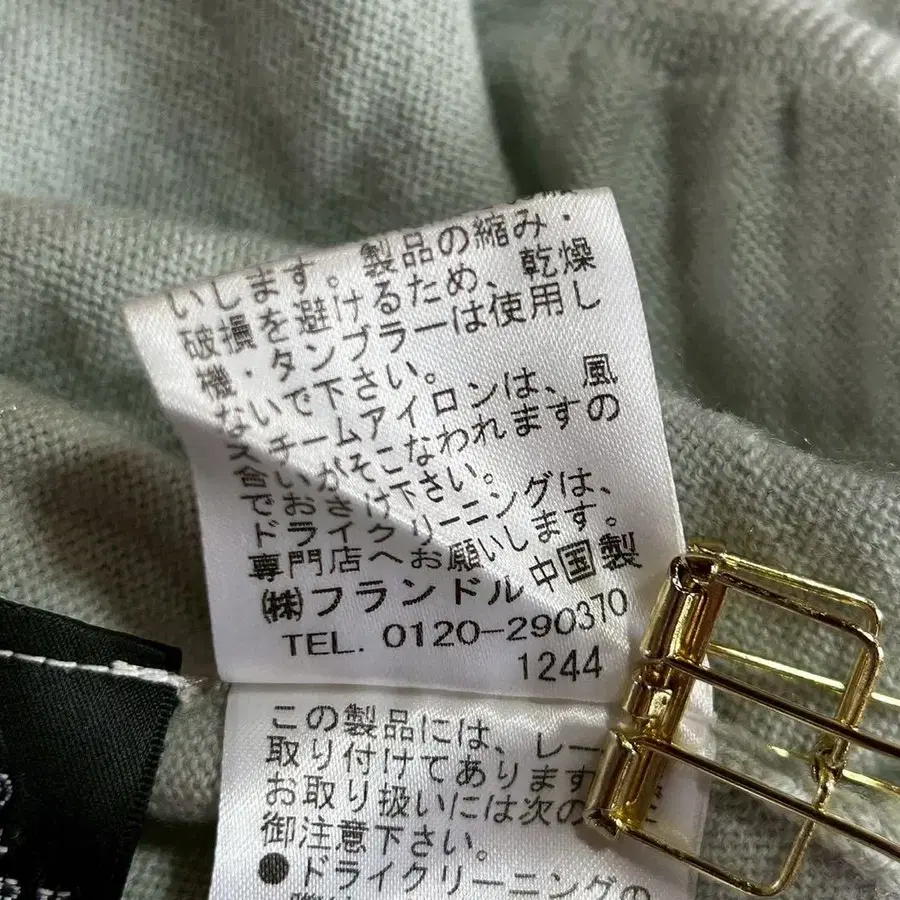 いします。製品の縮み・
破損を避けるため、乾燥
機・タンブラーは使用し
ないで下さい。
スチームアイロンは、風
合いがそこなわれますの
でおさけ下さい。
ドライクリーニングは、
専門店へお願いします。
㈱フランドル 中国製
TEL. 0120-290370
1244
この製品には、レー
取り付けてあります
お取り扱いには次の
御注意下さい。
●ドライクリーニングの